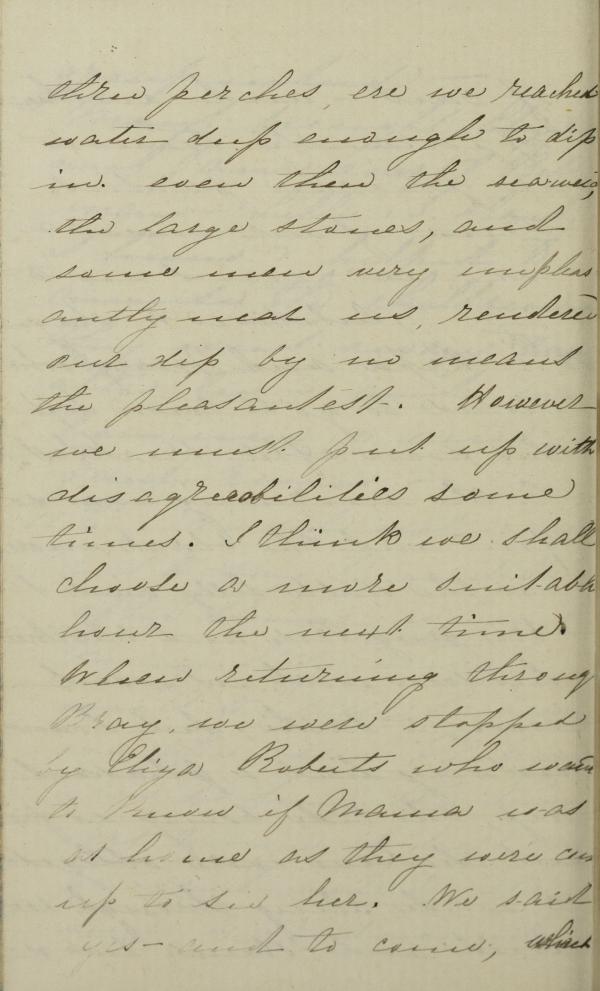 three perches, ere we reached
water deep enough to dip
in. even then the seaweed,
the large stones, and
some men very unpleas
antly near us, rendered
our dip by no means
the pleasantest. However
we must put up with
disagreeabilities some
times. I think we shall
choose a more suitable
hour the next time.
When returning through
Bray, we were stopped
by Eliza Roberts who
to know if Mama was
at home as they were
up to see her. We said
yes - and to come, which